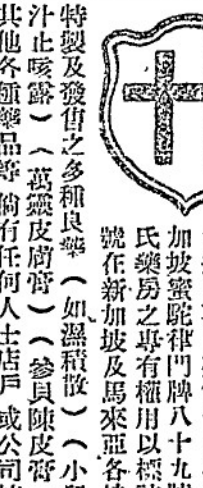 加坡蜜駝律門牌八十九
氏藥房之專有權用以標
號在新加坡及馬來亞各
特製及發售之多種良藥（如濕積散）（小
汁止咳露）（萬靈皮膚膏）（參貝陳皮膏
其他各種藥品等倘有任何人士店戶或公司